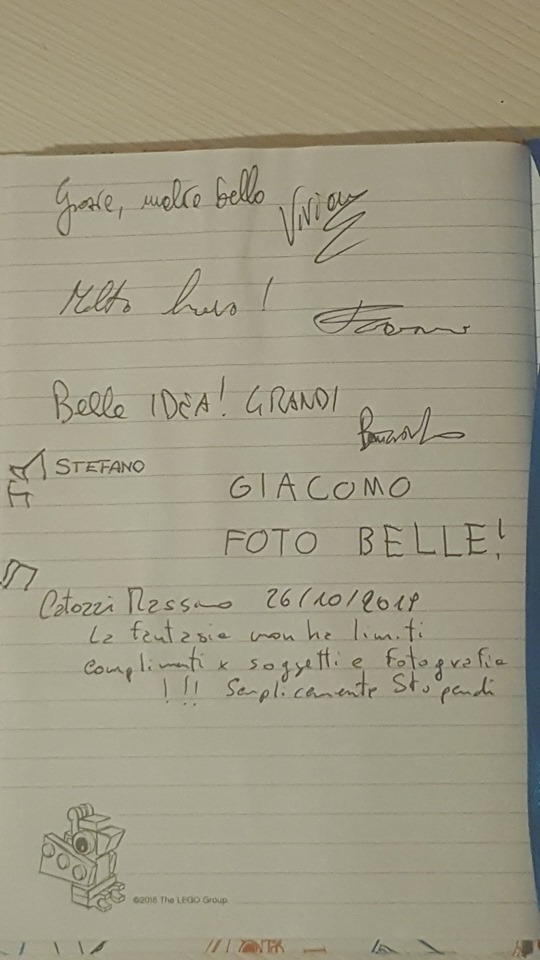 Grazie, molto bello
Molto bravo!
Belle IDEA! GRANDI
STEFANO
GIACOMO
FOTO BELLE!
Catozzi Massimo 26/10/2019
La fantasia non ha limiti
complimenti x soggetti e fotografia
!!! Semplicemente Stupendi
©2018 The LEGO Group.